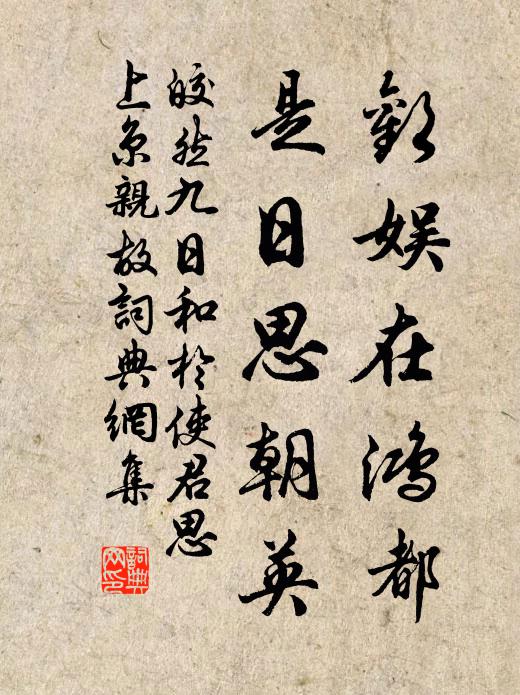 歡娛在鴻都
是日思朝英
皎然九日和於使君思
上京親故詞典網集
詞典
网印